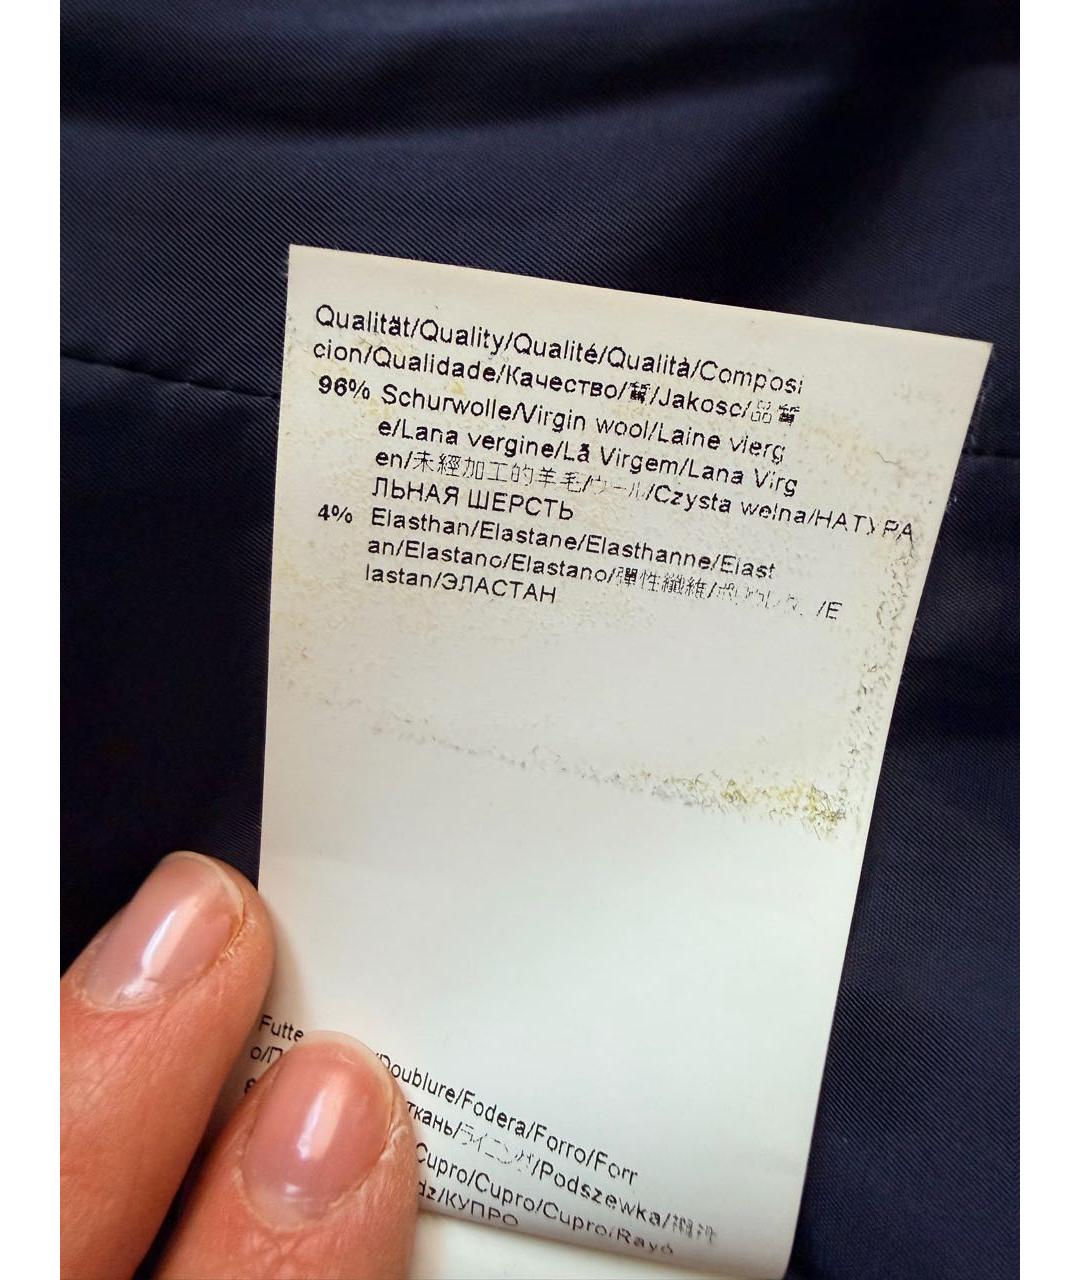 Qualität/Quality/Qualité/Qualità/Composi
cion/Qualidade/Качество/質/Jakosc/品質
96% Schurwolle/Virgin wool/Laine vierg
e/Lana vergine/Lã Virgem/Lana Virg
en/未經加工的羊毛/ウール/Czysta welna/НАТУРА
ЛЬНАЯ ШЕРСТЬ
4% Elasthan/Elastane/Elasthanne/Elast
an/Elastano/Elastano/彈性纖維/ /E
lastan/ЭЛАСТАН
Futte /Doublure/Fodera/Forro/Forr
o/П ткань/ライニング/Podszewka/
Cupro/Cupro/Cupro/Rayó
dz/КУПРО